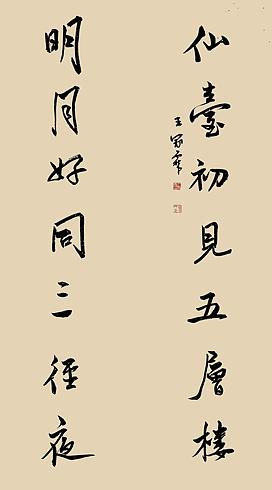 仙臺初見五層樓
王
明月好同三徑夜